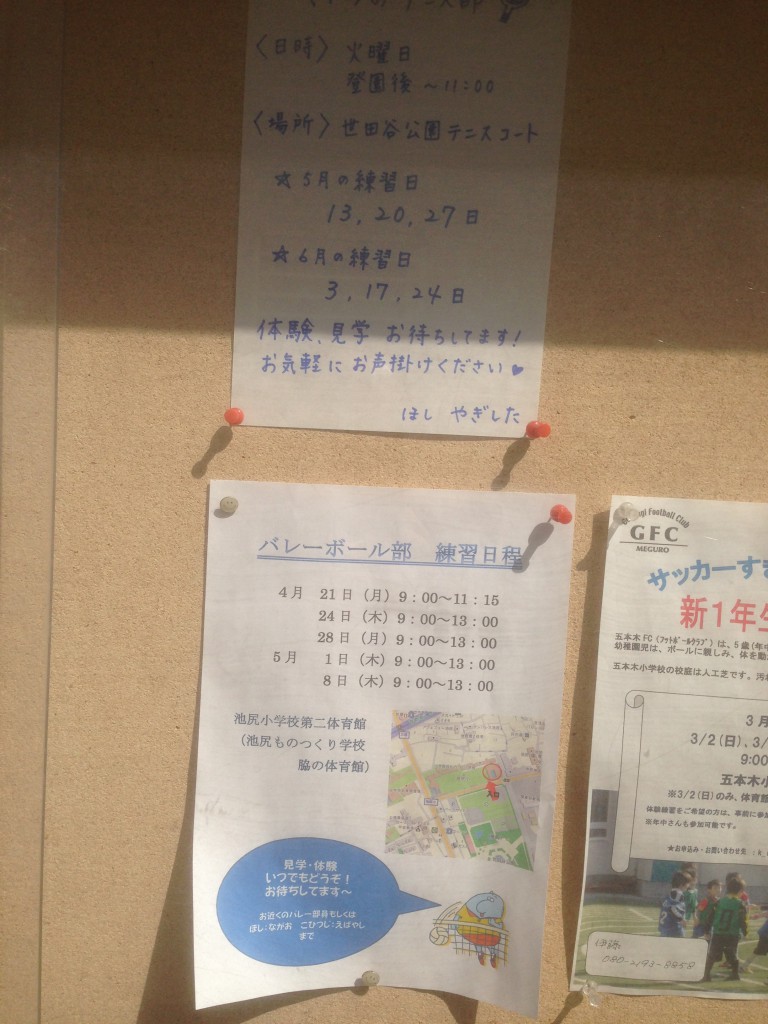 〈日時〉 火曜日
登園後 ~11:00
〈場所〉 世田谷公園テニスコート
☆5月の練習日
13, 20, 27日
☆6月の練習日
3, 17, 24日
体験、見学 お待ちしてます!
お気軽に お声掛けください♥
ほし やぎした
バレーボール部 練習日程
4月 21日(月)9:00~11:15
24日(木)9:00~13:00
28日(月)9:00~13:00
5月 1日(木)9:00~13:00
8日(木)9:00~13:00
池尻小学校第二体育館
(池尻ものつくり学校
脇の体育館)
見学・体験
いつでもどうぞ!
お待ちしてます~
お近くのバレー部員もしくは
ほし:ながお こひつじ:えばやし
まで
Football Club
GFC
MEGURO
サッカーす
新1年生
五本木FC(フットボールクラブ)は、5歳(年中
幼稚園児は、ボールに親しみ、体を動
五本木小学校の校庭は人工芝です。汚
3月
3/2(日)、3/
9:00
五本木小
※3/2(日)のみ、体育館
体験練習をご希望の方は、事前に参
※年中さんも参加可能です。
★お申込み・お問い合わせ先 :
伊藤
080-2193-8858